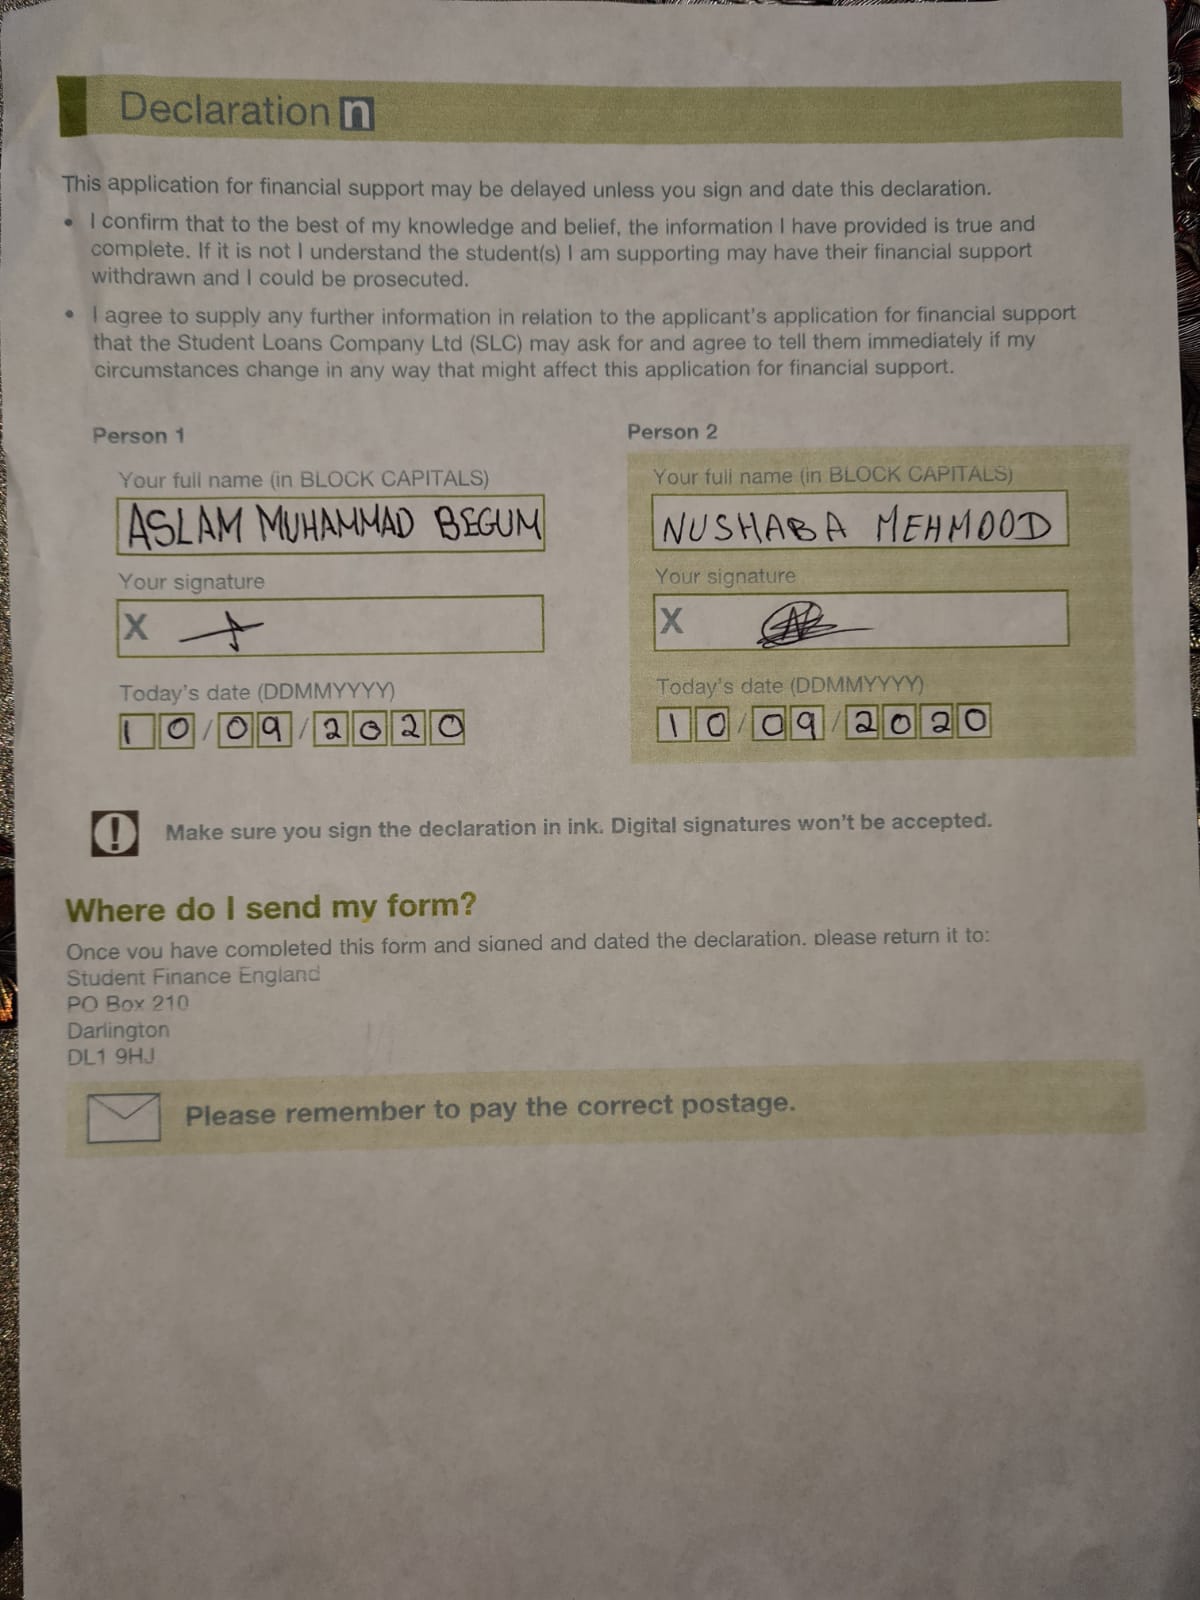 Declaration n
This application for financial support may be delayed unless you sign and date this declaration.
• I confirm that to the best of my knowledge and belief, the information I have provided is true and
complete. If it is not I understand the student(s) I am supporting may have their financial support
withdrawn and I could be prosecuted.
• I agree to supply any further information in relation to the applicant's application for financial support
that the Student Loans Company Ltd (SLC) may ask for and agree to tell them immediately if my
circumstances change in any way that might affect this application for financial support.
Person 1
Your full name (in BLOCK CAPITALS)
ASLAM MUHAMMAD BEGUM
Your signature
X
Today's date (DDMMYYYY)
10/09/2020
Person 2
Your full name (in BLOCK CAPITALS)
NUSHABA MEHMOOD
Your signature
X
Today's date (DDMMYYYY)
10/09/2020
! Make sure you sign the declaration in ink. Digital signatures won't be accepted.
Where do I send my form?
Once you have completed this form and signed and dated the declaration, please return it to:
Student Finance England
PO Box 210
Darlington
DL1 9HJ
Please remember to pay the correct postage.